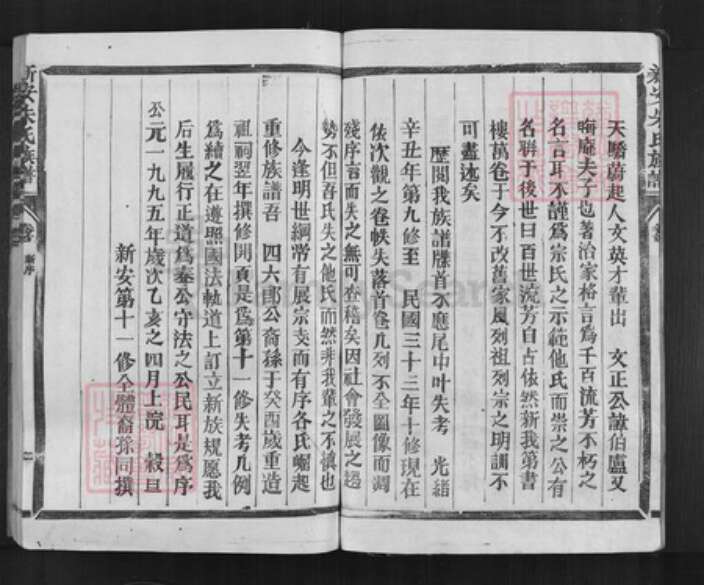 天疇蔚起人文英才輩出 文正公諱伯廬又
晦庵夫子也著治家格言為千百流芳不朽之
名言耳不謹為宗氏之示範他氏而崇之公有
名聯于後世曰百世流芳自占依然新我第書
樓萬卷于今不改舊家風列祖列宗之明訓不
可盡述矣
歷閱我族譜牒首不應尾中叶失考 光緒
辛丑年第九修至 民國三十三年十修現在
依次觀之卷帙失落首卷几列不全圖像而凋
殘序言而失之無可查稽矣因社會發展之趨
勢不但吾氏失之他氏而然非我輩之不慎也
今逢明世綱常有展宗支而有序各氏崛起
重修族譜吾 四六郎公裔孫于癸酉歲重造
祖祠翌年撰修開頁是為第十一修失考几例
為續之在遵照國法軌道上訂立新族規愿我
后生履行正道為奉公守法之公民耳是為序
公元一九九五年歲次乙亥之四月上浣 穀旦
新安第十一修全體裔孫同撰
新安朱氏族譜
新序